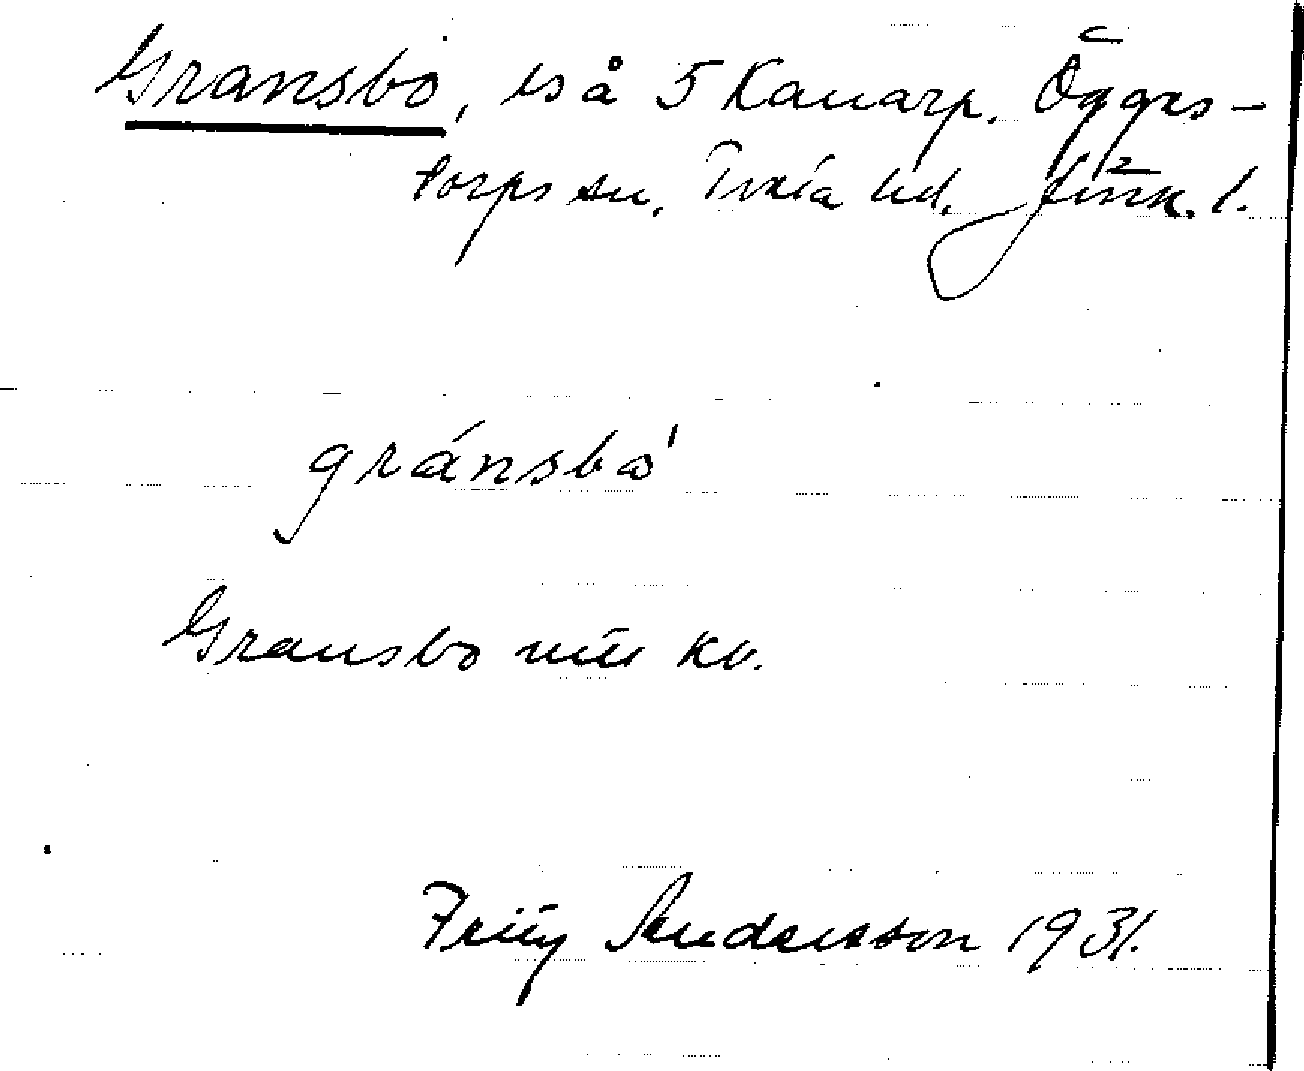 Gransbo, ls å 5 Kanarp. Öggers-
torps sn, Tveta hd. Jönk. l.
gránsbo'
Gransbo kv.
Andersson 1931.